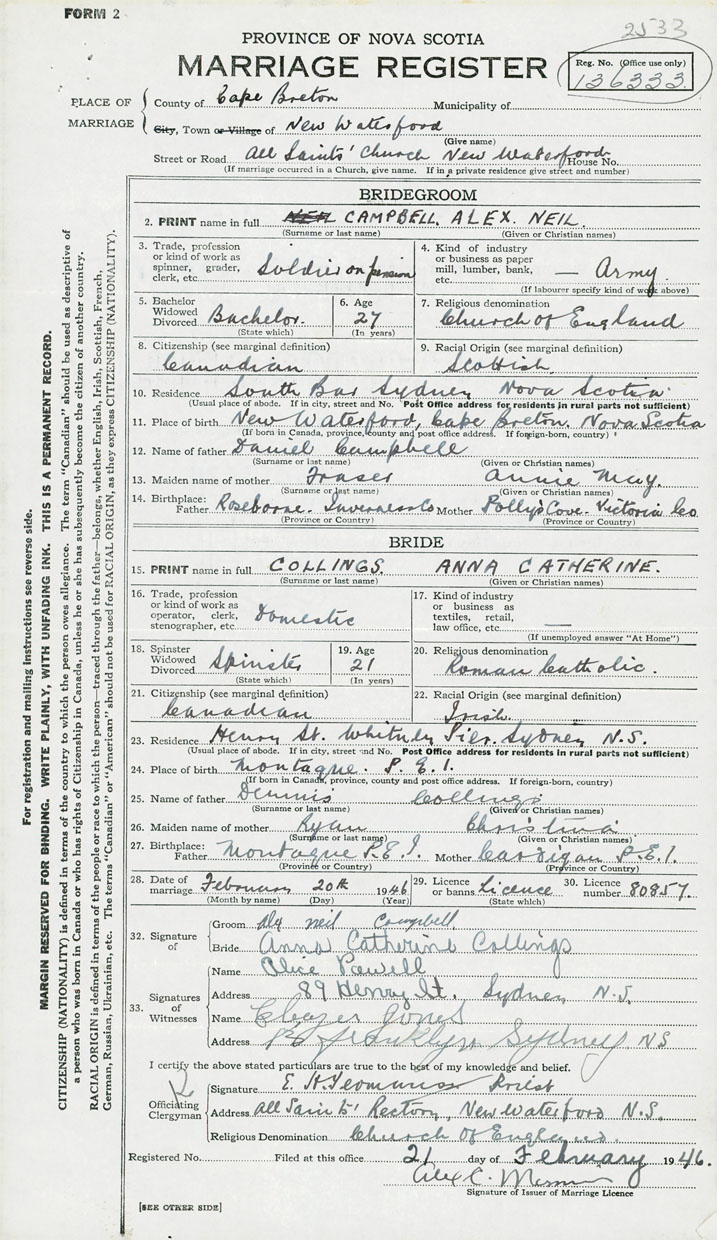 FORM 2
2533
PROVINCE OF NOVA SCOTIA
MARRIAGE REGISTER
Reg. No. (Office use only)
136333
PLACE OF MARRIAGE
County of Cape Breton Municipality of
City, Town or Village of New Waterford
(Give name)
Street or Road All Saints' Church New Waterford House No.
(If marriage occurred in a Church, give name. If in a private residence give street and number)
BRIDEGROOM
2. PRINT name in full NEIL CAMPBELL, ALEX. NEIL.
(Surname or last name) (Given or Christian names)
3. Trade, profession or kind of work as spinner, grader, clerk, etc. Soldier on pension
4. Kind of industry or business as paper mill, lumber, bank, etc. — Army.
(If labourer specify kind of work above)
5. Bachelor Widowed Divorced Bachelor.
(State which)
6. Age 27
(In years)
7. Religious denomination Church of England
8. Citizenship (see marginal definition) Canadian
9. Racial Origin (see marginal definition) Scottish
10. Residence South Bar Sydney Nova Scotia
(Usual place of abode. If in city, street and No. Post Office address for residents in rural parts not sufficient)
11. Place of birth New Waterford, Cape Breton. Nova Scotia
(If born in Canada, province, county and post office address. If foreign-born, country)
12. Name of father Daniel Campbell
(Surname or last name) (Given or Christian names)
13. Maiden name of mother Fraser Annie May.
(Surname or last name) (Given or Christian names)
14. Birthplace: Father Roseborne. Inverness Co Mother Polly's Cove. Victoria Co
(Province or Country) (Province or Country)
BRIDE
15. PRINT name in full COLLINGS. ANNA CATHERINE.
(Surname or last name) (Given or Christian names)
16. Trade, profession or kind of work as operator, clerk, stenographer, etc. Domestic
17. Kind of industry or business as textiles, retail, law office, etc. —
(If unemployed answer "At Home")
18. Spinster Widowed Divorced Spinster
(State which)
19. Age 21
(In years)
20. Religious denomination Roman Catholic.
21. Citizenship (see marginal definition) Canadian
22. Racial Origin (see marginal definition) Irish.
23. Residence Henry St. Whitney Pier. Sydney N.S.
(Usual place of abode. If in city, street and No. Post Office address for residents in rural parts not sufficient)
24. Place of birth Montague. P.E.I.
(If born in Canada, province, county and post office address. If foreign-born, country)
25. Name of father Dennis Collings
(Surname or last name) (Given or Christian names)
26. Maiden name of mother Ryan Christina
(Surname or last name) (Given or Christian names)
27. Birthplace: Father Montague P.E.I. Mother Cardigan P.E.I.
(Province or Country) (Province or Country)
28. Date of marriage February 20th 1946
(Month by name) (Day) (Year)
29. Licence or banns Licence
(State which)
30. Licence number 80857.
32. Signature of
Groom Alex neil Campbell
Bride Anna Catherine Collings
33. Signatures of Witnesses
Name Alice Powell
Address 89 Henry St. Sydney N.S.
Name Eleazer Jones
Address Franklyn Sydney NS
I certify the above stated particulars are true to the best of my knowledge and belief.
Officiating Clergyman
Signature E. H. Yeomans Priest
Address All Saints' Rectory, New Waterford N.S.
Religious Denomination Church of England.
Registered No. Filed at this office 21 day of February 1946.
Alex C.
Signature of Issuer of Marriage Licence
[SEE OTHER SIDE]
For registration and mailing instructions see reverse side.
MARGIN RESERVED FOR BINDING. WRITE PLAINLY, WITH UNFADING INK. THIS IS A PERMANENT RECORD.
CITIZENSHIP (NATIONALITY) is defined in terms of the country to which the person owes allegiance. The term "Canadian" should be used as descriptive of
a person who was born in Canada or who has rights of Citizenship in Canada, unless he or she has subsequently become the citizen of another country.
RACIAL ORIGIN is defined in terms of the people or race to which the person—traced through the father—belongs, whether English, Irish, Scottish, French,
German, Russian, Ukrainian, etc. The terms "Canadian" or "American" should not be used for RACIAL ORIGIN, as they express CITIZENSHIP (NATIONALITY).